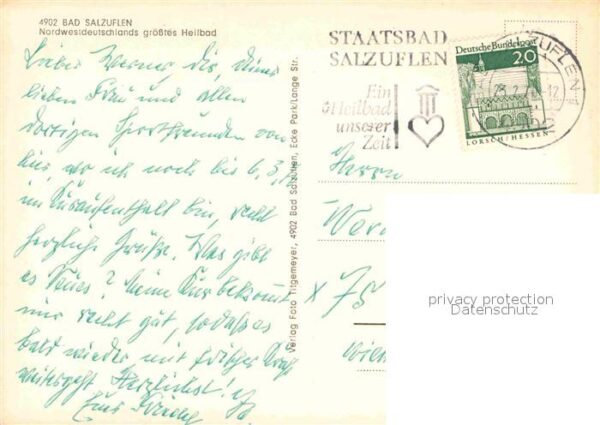 4902 BAD SALZUFLEN
Nordwestdeutschlands größtes Heilbad
Lieber Werner, dir, deiner
lieben Frau und allen
dortigen Sportfreunden von
hier, wo ich noch bis 6.3.
im Kuraufenthalt bin, recht
herzliche Grüße. Was gibt
es Neues? Meine Kur bekommt
mir recht gut, sodaß es
bald wieder mit frischer Kraft
weitergeht. Herzlichst!
Verlag Foto Tilgemeyer, 4902 Bad Salzuflen, Ecke Park/Lange Str.
STAATSBAD
SALZUFLEN
Ein
Heilbad
unserer
Zeit
Deutsche Bundespost
20
LORSCH/HESSEN
ZUFLEN 1
Herrn
x 75
privacy protection
Datenschutz